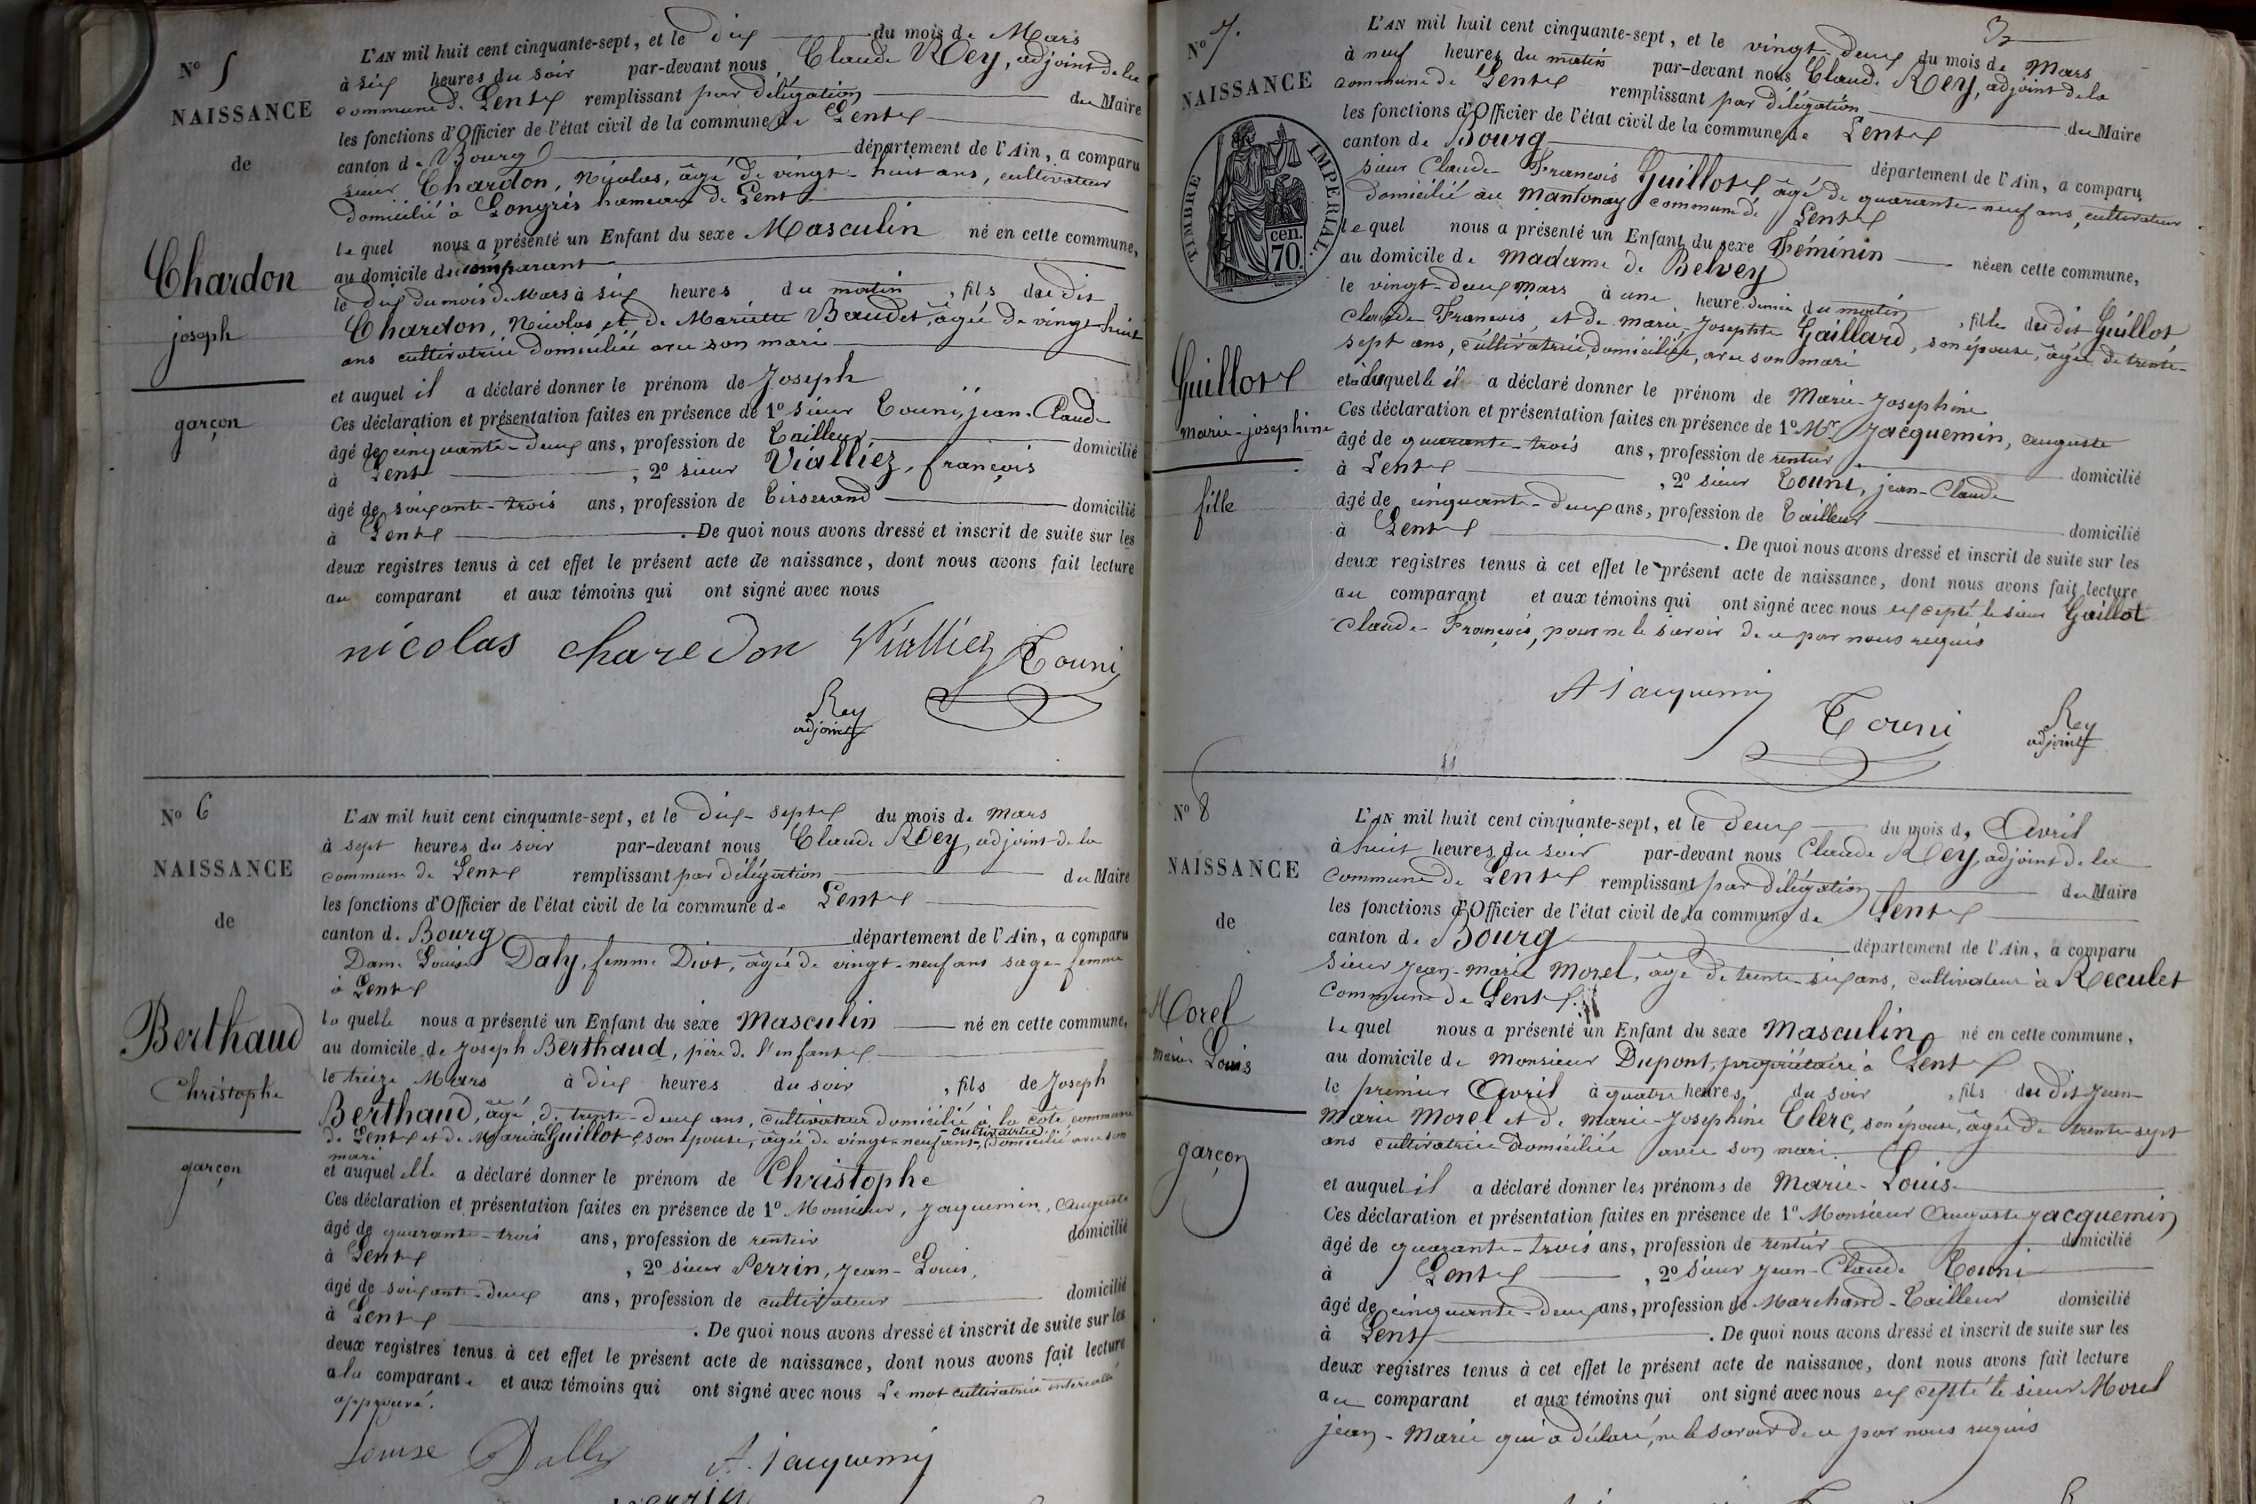 N° 5
NAISSANCE
de
Chardon
joseph
garçon
L'AN mil huit cent cinquante-sept, et le dix du mois de Mars
à six heures du soir par-devant nous Claude Rey, adjoint de la
commune de Lent remplissant par délégation du Maire
les fonctions d'Officier de l'état civil de la commune de Lent
canton de Bourg département de l'Ain, a comparu
sieur Chardon, Nicolas, âgé de vingt-huit ans, cultivateur
domicilié à Longris hameau de Lent
lequel nous a présenté un Enfant du sexe Masculin né en cette commune,
au domicile du comparant
le dix du mois de Mars à six heures du matin, fils du dit
Chardon, Nicolas et de Mariette Baudet, âgée de vingt-huit
ans cultivatrice domiciliée avec son mari
et auquel il a déclaré donner le prénom de Joseph
Ces déclaration et présentation faites en présence de 1° sieur Touni, jean-Claude
âgé de cinquante-deux ans, profession de Tailleur domicilié
à Lent, 2° sieur Vialliez, françois
âgé de soixante-trois ans, profession de Tisserand domicilié
à Lent. De quoi nous avons dressé et inscrit de suite sur les
deux registres tenus à cet effet le présent acte de naissance, dont nous avons fait lecture
au comparant et aux témoins qui ont signé avec nous
nicolas charedon Vialliez Touni
Rey
adjoint
N° 6
NAISSANCE
de
Berthaud
Christophe
garçon
L'AN mil huit cent cinquante-sept, et le dix-sept du mois de mars
à sept heures du soir par-devant nous Claude Rey, adjoint de la
commune de Lent remplissant par délégation du Maire
les fonctions d'Officier de l'état civil de la commune de Lent
canton de Bourg département de l'Ain, a comparu
Dame Louise Daly, femme Diot, âgée de vingt-neuf ans sage-femme
à Lent
laquelle nous a présenté un Enfant du sexe Masculin né en cette commune,
au domicile de Joseph Berthaud, père de l'enfant
le treize Mars à dix heures du soir, fils de Joseph
Berthaud, âgé de trente-deux ans, cultivateur domicilié à la cote commune
de Lent et de Mariette Guillot son épouse, âgée de vingt-neuf ans, cultivatrice domiciliée avec son
mari
et auquel elle a déclaré donner le prénom de Christophe
Ces déclaration et présentation faites en présence de 1° Monsieur, Jaquemin, Auguste
âgé de quarante-trois ans, profession de rentier domicilié
à Lent, 2° sieur Perrin, Jean-Louis,
âgé de soixante-deux ans, profession de cultivateur domicilié
à Lent. De quoi nous avons dressé et inscrit de suite sur les
deux registres tenus à cet effet le présent acte de naissance, dont nous avons fait lecture
à la comparante et aux témoins qui ont signé avec nous Le mot cultivatrice intercalé
approuvé.
Louise Dally A. Jacquemin
3
N° 7.
NAISSANCE
TIMBRE IMPERIAL.
cen.
70.
Guillot
marie-josephine
fille
L'AN mil huit cent cinquante-sept, et le vingt-deux du mois de Mars
à neuf heures du matin par-devant nous Claude Rey, adjoint de la
commune de Lent remplissant par délégation du Maire
les fonctions d'Officier de l'état civil de la commune de Lent
canton de Bourg département de l'Ain, a comparu
sieur Claude François Guillot âgé de quarante-neuf ans, cultivateur
domicilié au Mantonay commune de Lent
lequel nous a présenté un Enfant du sexe Féminin née en cette commune,
au domicile de madame de Belvey
le vingt-deux mars à une heure demie du matin, fille du dit Guillot
claude François, et de marie-Josephte Gaillard, son épouse, âgée de trente-
sept ans, cultivatrice, domiciliée, avec son mari
et à laquelle il a déclaré donner le prénom de Marie-Josephine
Ces déclaration et présentation faites en présence de 1° Mr Jacquemin, auguste
âgé de quarante-trois ans, profession de rentier domicilié
à Lent, 2° sieur Touni, jean-Claude
âgé de cinquante-deux ans, profession de Tailleur domicilié
à Lent. De quoi nous avons dressé et inscrit de suite sur les
deux registres tenus à cet effet le présent acte de naissance, dont nous avons fait lecture
au comparant et aux témoins qui ont signé avec nous excepté le sieur Guillot
Claude-François, pour ne le savoir de ce par nous requis
A Jacquemin
Touni
Rey
adjoint
N° 8
NAISSANCE
de
Morel
marie Louis
garçon
L'AN mil huit cent cinquante-sept, et le deux du mois d'Avril
à huit heures du soir par-devant nous Claude Rey, adjoint de la
commune de Lent remplissant par délégation du Maire
les fonctions d'Officier de l'état civil de la commune de Lent
canton de Bourg département de l'Ain, a comparu
Sieur Jean-Marie Morel, âgé de trente-six ans, cultivateur à Reculet
commune de Lent.
lequel nous a présenté un Enfant du sexe Masculin né en cette commune,
au domicile de Monsieur Dupont, propriétaire à Lent
le premier Avril à quatre heures du soir, fils du dit Jean-
Marie Morel et de Marie-Josephine Clerc, son épouse, âgée de trente-sept
ans cultivatrice domiciliée avec son mari.
et auquel il a déclaré donner les prénoms de Marie-Louis
Ces déclaration et présentation faites en présence de 1° Monsieur Auguste Jacquemin
âgé de quarante-trois ans, profession de rentier domicilié
à Lent, 2° sieur Jean-Claude Touni
âgé de cinquante-deux ans, profession de Marchand-Tailleur domicilié
à Lent. De quoi nous avons dressé et inscrit de suite sur les
deux registres tenus à cet effet le présent acte de naissance, dont nous avons fait lecture
au comparant et aux témoins qui ont signé avec nous excepté le sieur Morel
jean-Marie qui a déclaré, ne le savoir de ce par nous requis